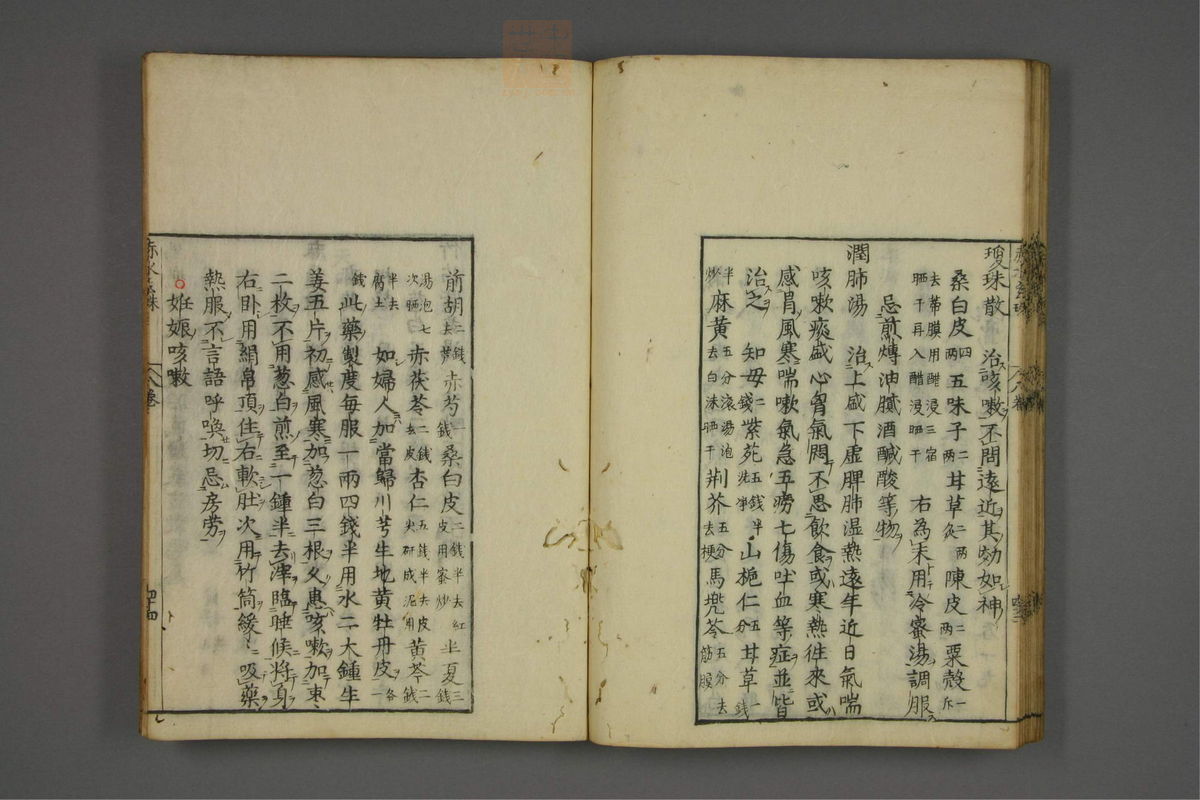 瓊珠散　治咳嗽不問遠近其効如神
桑白皮四兩五味子二兩甘草二兩炙陳皮二兩栗殼一斤
去蒂膜用醋浸三宿晒干再入醋浸晒干　右為末用冷蜜湯調服
忌煎煿油膩酒醎酸等物
潤肺湯　治上盛下虛脾肺湿熱遠年近日氣喘
咳嗽痰盛心胷氣悶不思飲食或寒熱徃來或
感冐風寒喘嗽氣急五癆七傷吐血等症並皆
治之　知母二錢紫苑五錢洗淨山梔仁五分甘草一錢
半炒麻黃五分滾湯泡去白沫晒干荆芥五分去梗馬兜苓五分去筋膜
前胡二錢去蘆赤芍一錢桑白皮二錢半去紅皮用蜜炒半夏三錢
湯泡七次晒赤茯苓二錢去皮杏仁五錢半去皮尖研成泥用黃芩二錢
半去腐土　如婦人加當歸川芎生地黃牡丹皮各一
錢此藥製度每服一兩四錢半用水二大鍾生
姜五片初感風寒加葱白三根久患咳嗽加枣
二枚不用葱白煎至一鍾半去滓臨睡候將身
右卧用絹帛頂住右軟肚次用竹筒緩緩吸藥
熱服不言語呼喚切忌房勞
妊娠咳嗽
八卷
四十四